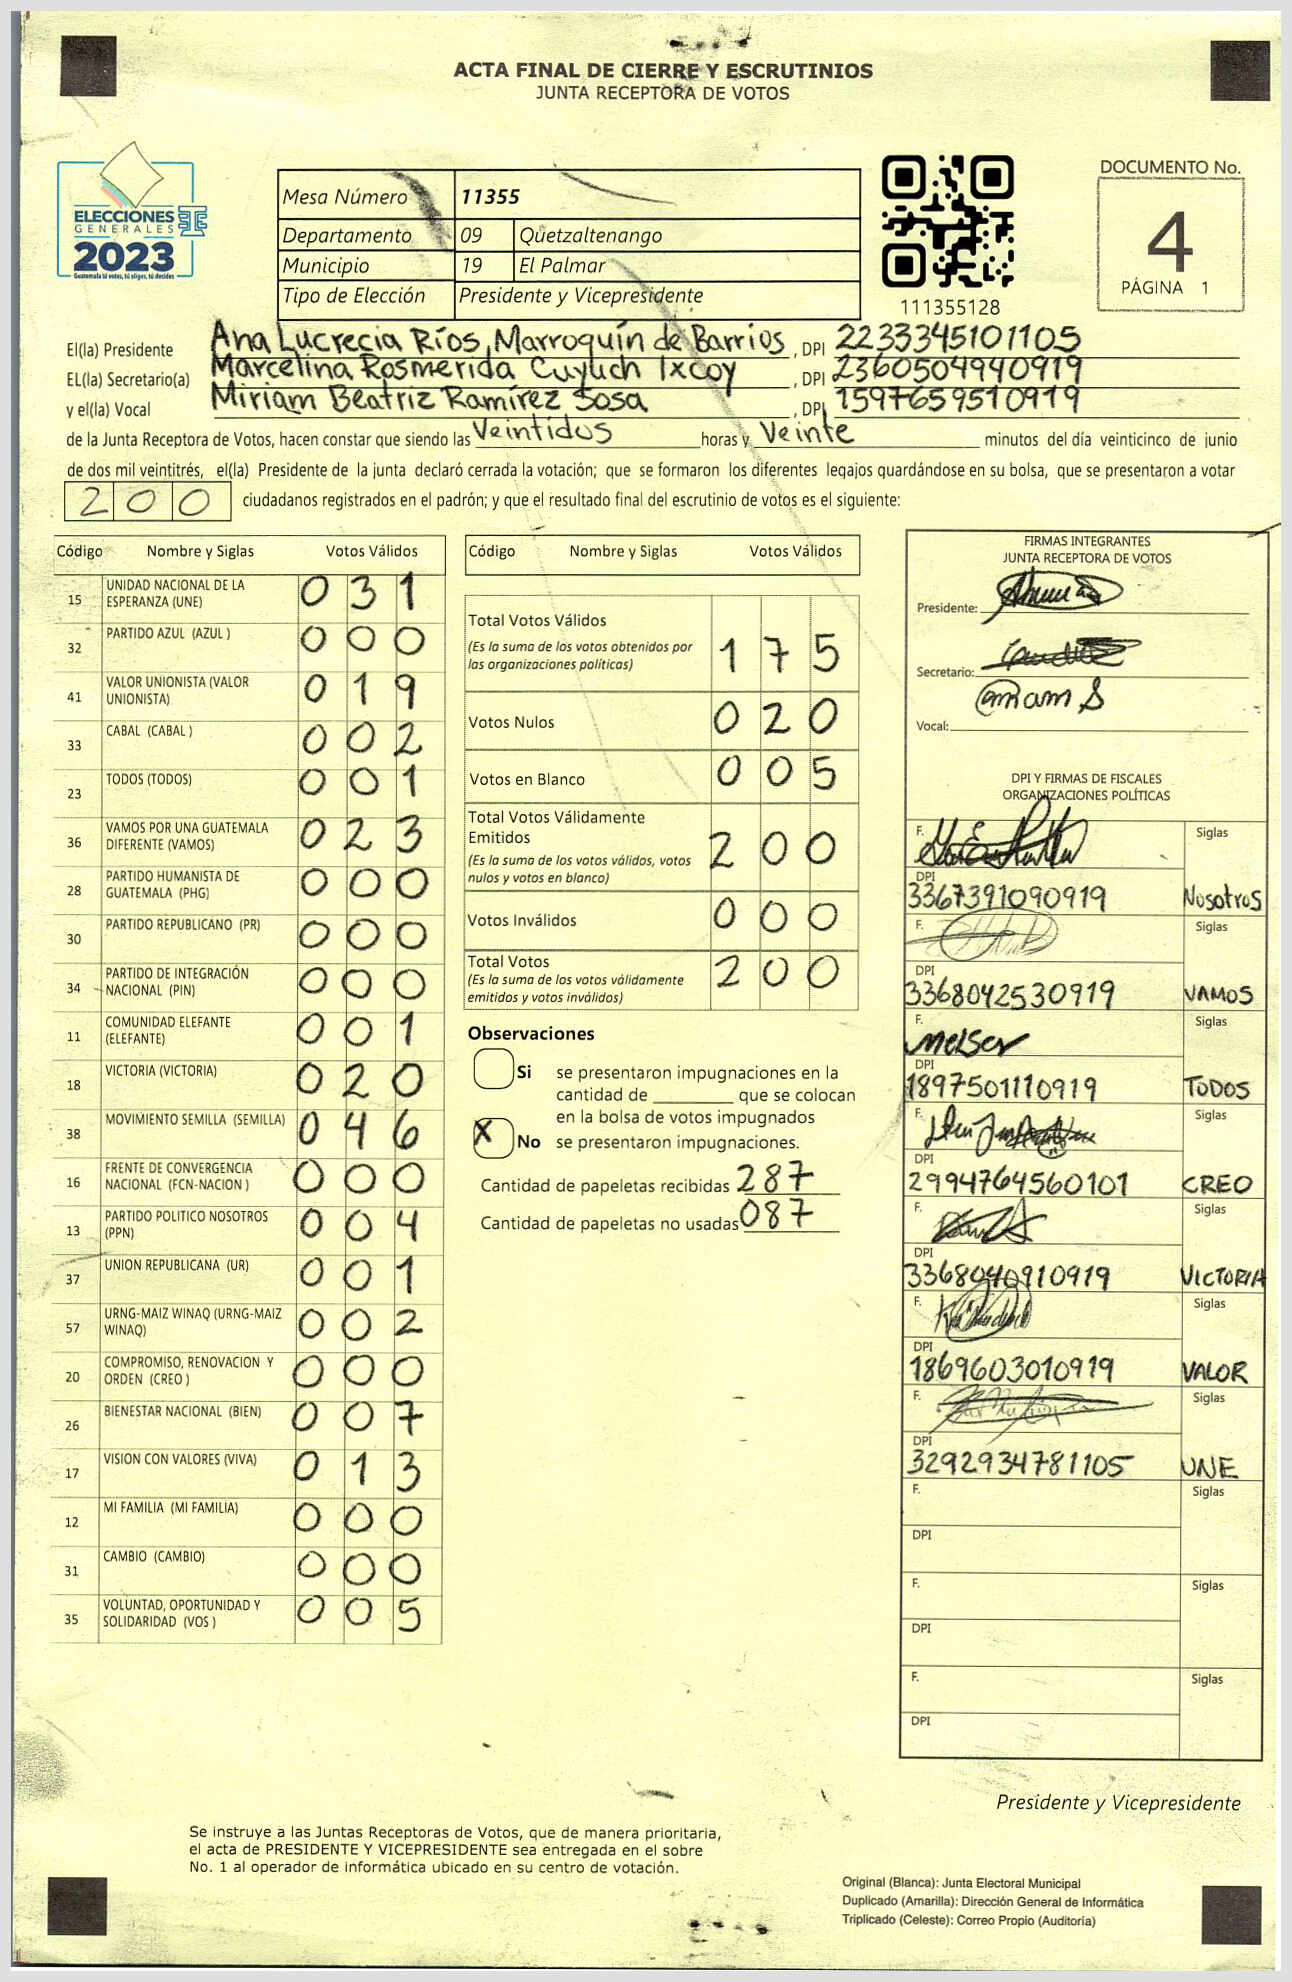 ACTA FINAL DE CIERRE Y ESCRUTINIOS
JUNTA RECEPTORA DE VOTOS
ELECCIONES
GENERALES
2023
Guatemala tú votes, tú eliges, tú decides
Mesa Número 11355
Departamento 09 Quetzaltenango
Municipio 19 El Palmar
Tipo de Elección Presidente y Vicepresidente
111355128
DOCUMENTO No.
4
PÁGINA 1
El(la) Presidente Ana Lucrecia Ríos Marroquín de Barrios , DPI 2233345101105
EL(la) Secretario(a) Marcelina Rosmerida Cuyuch Ixcoy , DPI 2360504940919
y el(la) Vocal Miriam Beatriz Ramírez Sosa , DPI 1597659510919
de la Junta Receptora de Votos, hacen constar que siendo las Veintidos horas y Veinte minutos del día veinticinco de junio
de dos mil veintitrés, el(la) Presidente de la junta declaró cerrada la votación; que se formaron los diferentes legajos quardándose en su bolsa, que se presentaron a votar
200 ciudadanos registrados en el padrón; y que el resultado final del escrutinio de votos es el siguiente:
Código Nombre y Siglas Votos Válidos
15 UNIDAD NACIONAL DE LA ESPERANZA (UNE) 031
32 PARTIDO AZUL (AZUL ) 000
41 VALOR UNIONISTA (VALOR UNIONISTA) 019
33 CABAL (CABAL ) 002
23 TODOS (TODOS) 001
36 VAMOS POR UNA GUATEMALA DIFERENTE (VAMOS) 023
28 PARTIDO HUMANISTA DE GUATEMALA (PHG) 000
30 PARTIDO REPUBLICANO (PR) 000
34 PARTIDO DE INTEGRACIÓN NACIONAL (PIN) 000
11 COMUNIDAD ELEFANTE (ELEFANTE) 001
18 VICTORIA (VICTORIA) 020
38 MOVIMIENTO SEMILLA (SEMILLA) 046
16 FRENTE DE CONVERGENCIA NACIONAL (FCN-NACION ) 000
13 PARTIDO POLITICO NOSOTROS (PPN) 004
37 UNION REPUBLICANA (UR) 001
57 URNG-MAIZ WINAQ (URNG-MAIZ WINAQ) 002
20 COMPROMISO, RENOVACION Y ORDEN (CREO ) 000
26 BIENESTAR NACIONAL (BIEN) 007
17 VISION CON VALORES (VIVA) 013
12 MI FAMILIA (MI FAMILIA) 000
31 CAMBIO (CAMBIO) 000
35 VOLUNTAD, OPORTUNIDAD Y SOLIDARIDAD (VOS ) 005
Código Nombre y Siglas Votos Válidos
Total Votos Válidos
(Es la suma de los votos obtenidos por
las organizaciones políticas) 175
Votos Nulos 020
Votos en Blanco 005
Total Votos Válidamente
Emitidos 200
(Es la suma de los votos válidos, votos
nulos y votos en blanco)
Votos Inválidos 000
Total Votos 200
(Es la suma de los votos válidamente
emitidos y votos inválidos)
Observaciones
Si se presentaron impugnaciones en la
cantidad de ________ que se colocan
en la bolsa de votos impugnados
X No se presentaron impugnaciones.
Cantidad de papeletas recibidas 287
Cantidad de papeletas no usadas 087
FIRMAS INTEGRANTES
JUNTA RECEPTORA DE VOTOS
Presidente:
Secretario:
Vocal:
DPI Y FIRMAS DE FISCALES
ORGANIZACIONES POLÍTICAS
F. Siglas
DPI
3367391090919 Nosotros
F. Siglas
DPI
3368042530919 VAMOS
F. Siglas
DPI
1897501110919 TODOS
F. Siglas
DPI
2994764560101 CREO
F. Siglas
DPI
3368040910919 VICTORIA
F. Siglas
DPI
1869603010919 VALOR
F. Siglas
DPI
3292934781105 UNE
F. Siglas
DPI
F. Siglas
DPI
F. Siglas
DPI
Presidente y Vicepresidente
Se instruye a las Juntas Receptoras de Votos, que de manera prioritaria,
el acta de PRESIDENTE Y VICEPRESIDENTE sea entregada en el sobre
No. 1 al operador de informática ubicado en su centro de votación.
Original (Blanca): Junta Electoral Municipal
Duplicado (Amarilla): Dirección General de Informática
Triplicado (Celeste): Correo Propio (Auditoría)